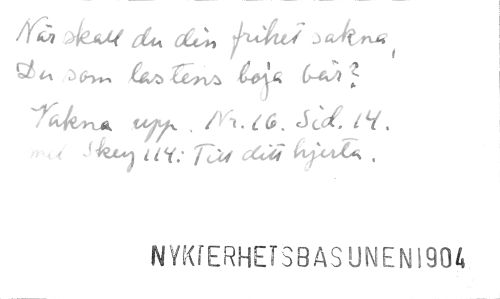 När skall du din frihet sakna,
Du som lastens boja bär?
Vakna upp. Nr. 16. Sid. 14.
mel Skey 114: Till ditt hjerta.
NYKTERHETSBASUNEN1904